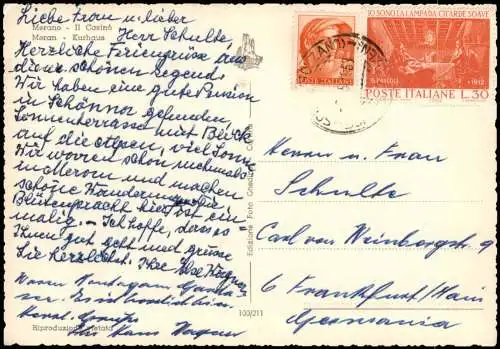 Liebe Frau u. lieber
Merano - Il Casinò
Meran - Kurhaus
Herr Schulte,
Herzliche Feriengrüsse aus
dieser schönen Gegend.
Wir haben eine gute Pension
in Schönna gefunden,
Sonnenterrasse mit Blick
auf die Alpen, viel Sonne.
Wir waren schon mehrmals
in Meran und machen
schöne Wanderungen. Die
Blütenpracht hier ist ein-
malig. - Ich hoffe, dass es
Ihnen gut geht und grüsse
Sie herzlichst. Ihre Ilse Wagner
Ihr Hans Wagner
Riproduzione vietata
100/211
Edizione Foto
IO SONO LA LAMPADA CH'ARDE SOAVE
G. PASCOLI
1912
POSTE ITALIANE L. 30
POSTE ITALIANE
Herrn u. Frau
Schulte
Carl von Weinbergstr. 9
6 Frankfurt/Main
Germania